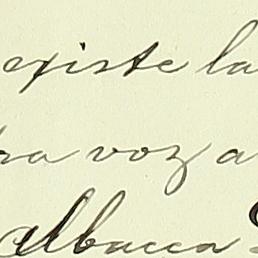 existe la
ra voz a
albacea